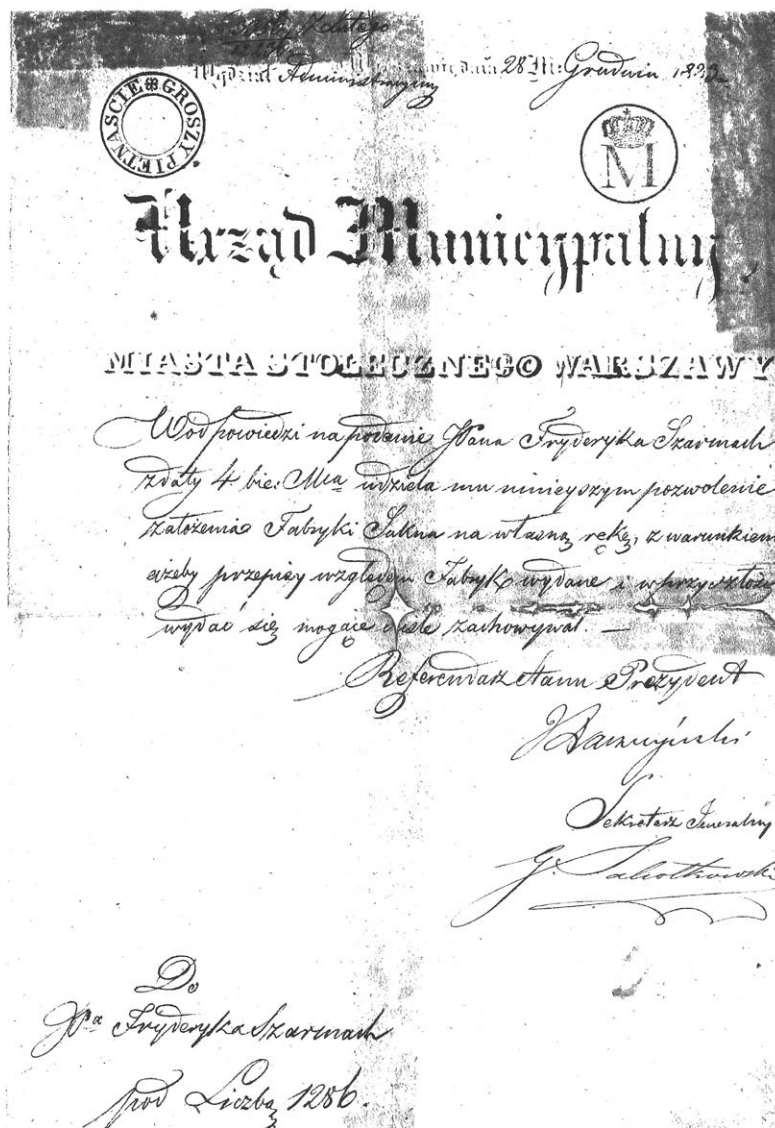 Wydział Administracyjny w Warszawie, dnia 28 M: Grudnia 1823
PIETNAŚCIE GROSZY
M
Urząd Municypalny
MIASTA STOŁECZNEGO WARSZAWY
W odpowiedzi na podanie JPana Fryderyka Szarmach
z daty 4 bie: Mca udziela mu ninieyszym pozwolenie
założenia Fabryki Sukna na własną rękę, z warunkiem
ażeby przepisy względem Fabryk wydane i w przyszłości
wydać się mogące ściśle zachowywał. —
Referendarz Stanu Prezydent
Sekretarz Jeneralny
G.
Do
JPa Fryderyka Szarmach
pod Liczbą 1286.